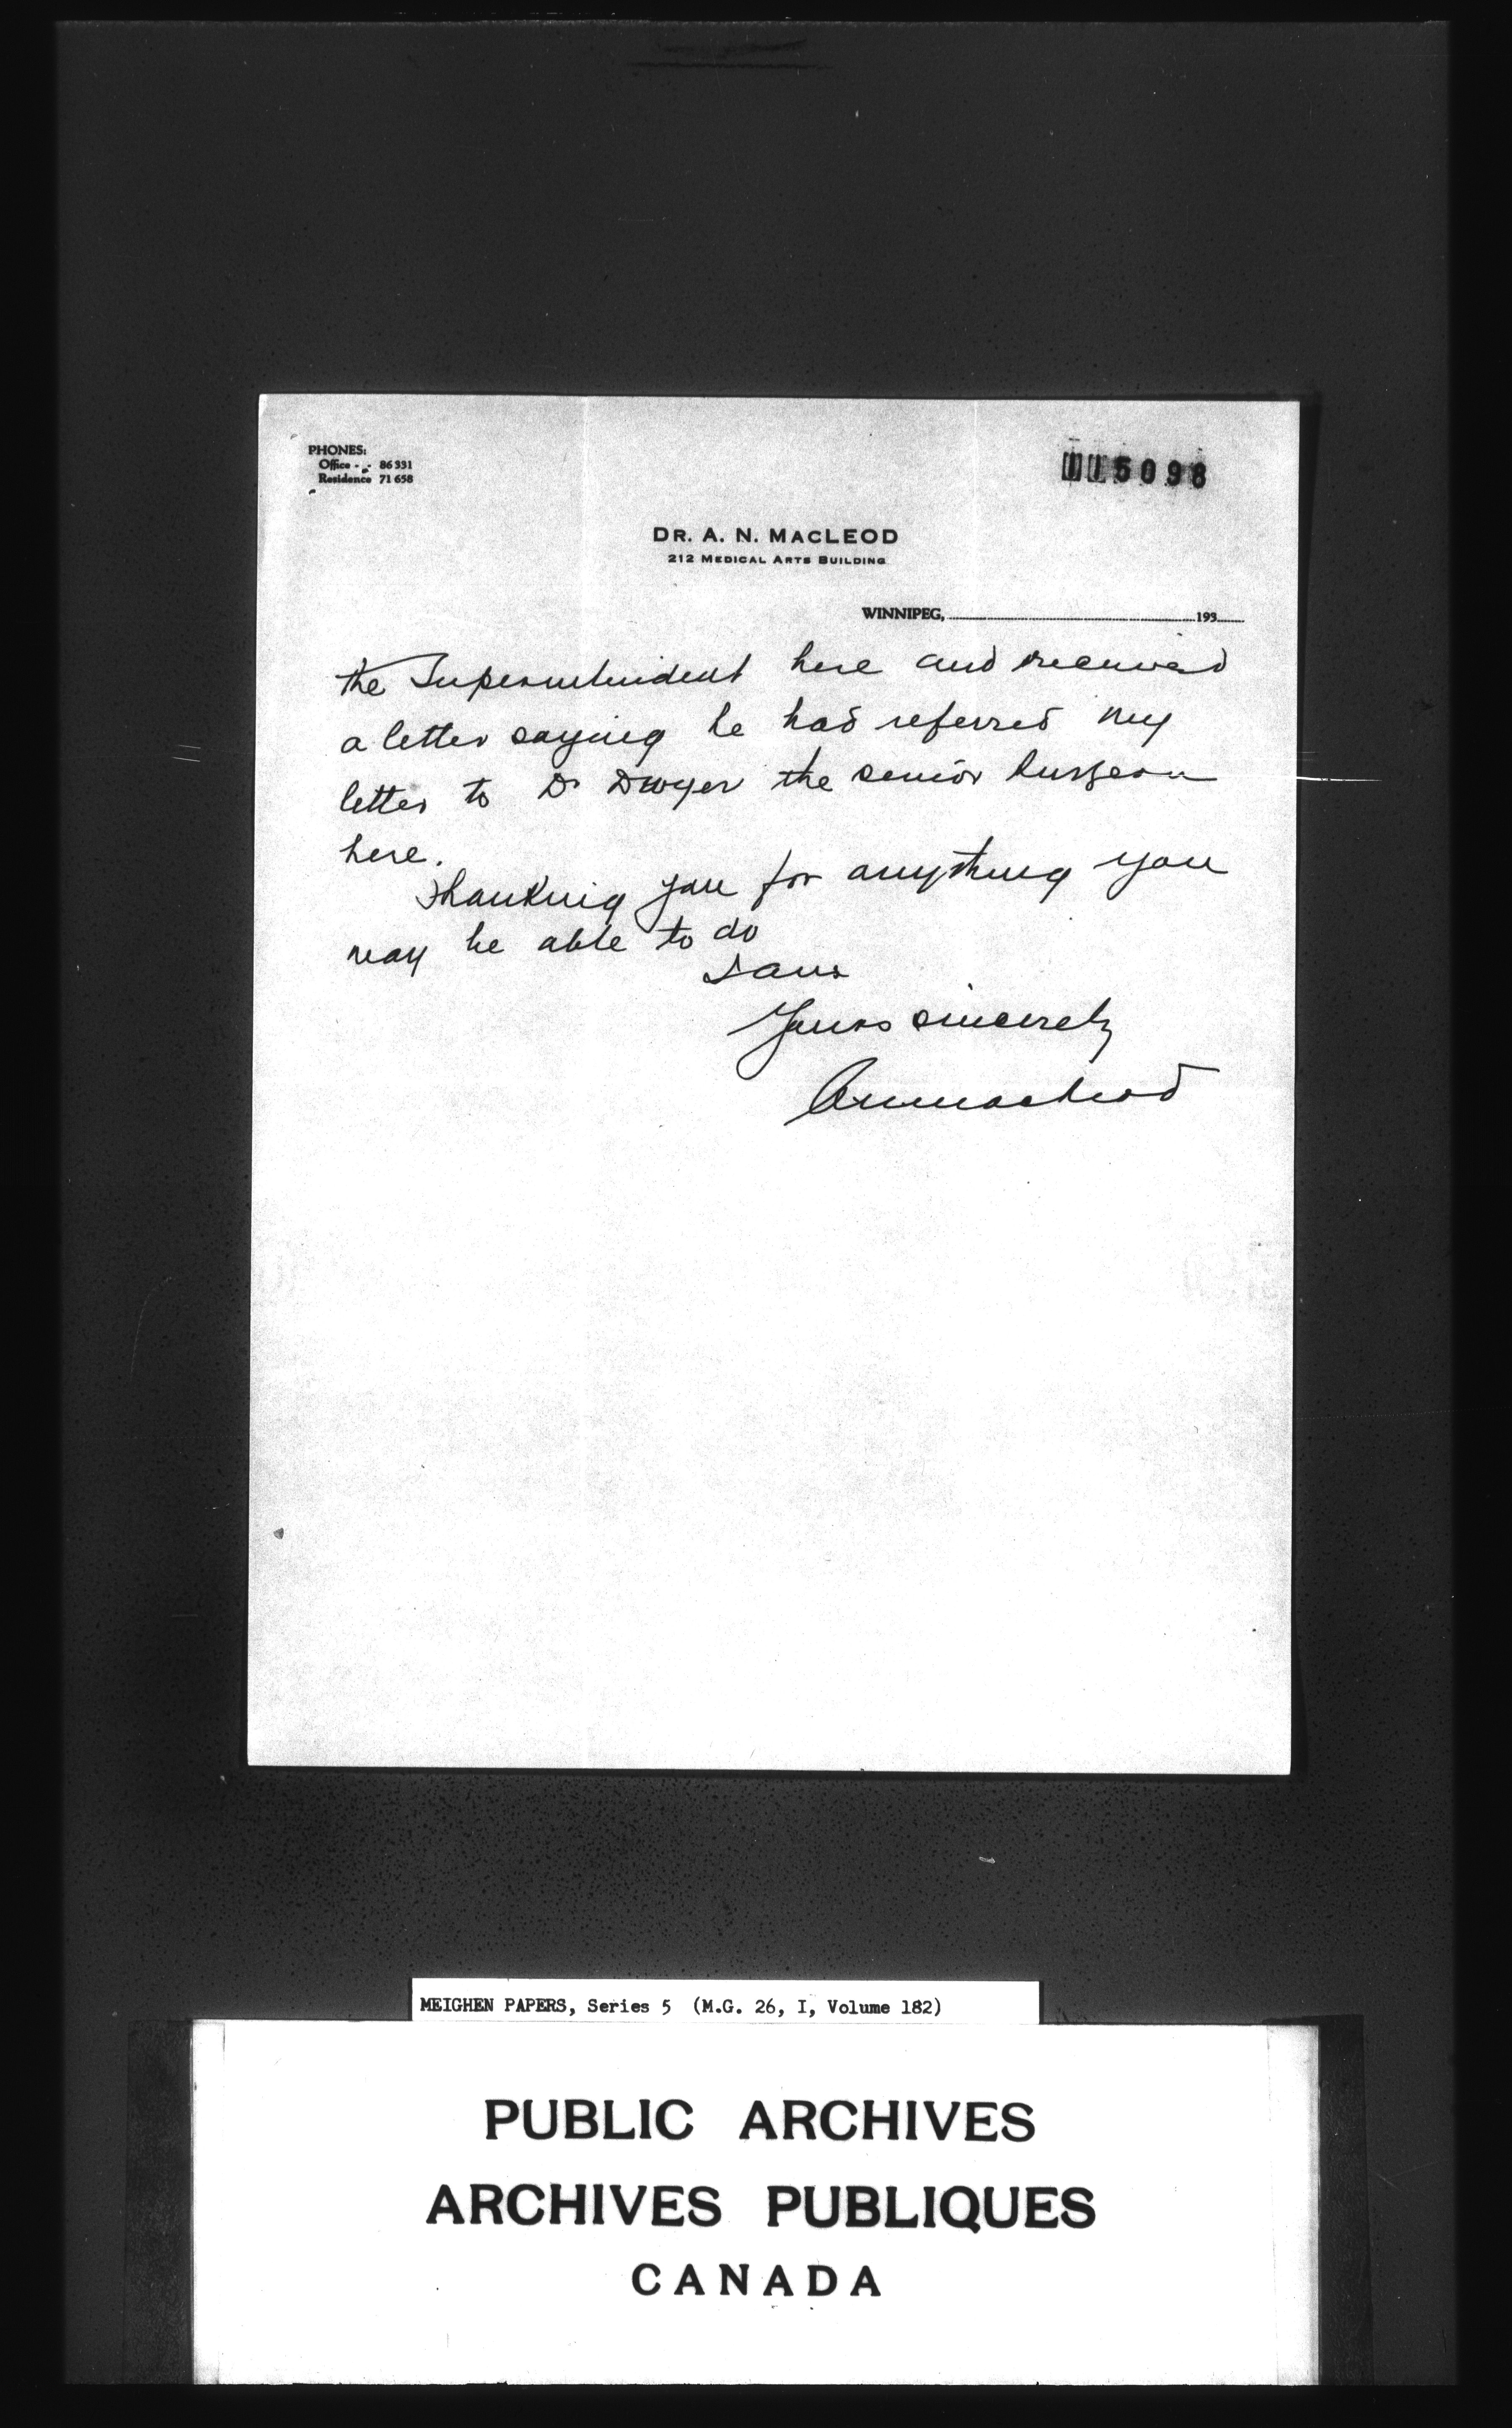 PHONES:
Office - - 86 331
Residence 71 658
115098
DR. A. N. MACLEOD
212 MEDICAL ARTS BUILDING
WINNIPEG, 193
the Superintendent here and received
a letter saying he had referred my
letter to Dr Dwyer the senior Surgeon
here.
Thanking you for anything you
may be able to do
I am
Yours sincerely
A N MacLeod
MEIGHEN PAPERS, Series 5 (M.G. 26, I, Volume 182)
PUBLIC ARCHIVES
ARCHIVES PUBLIQUES
CANADA